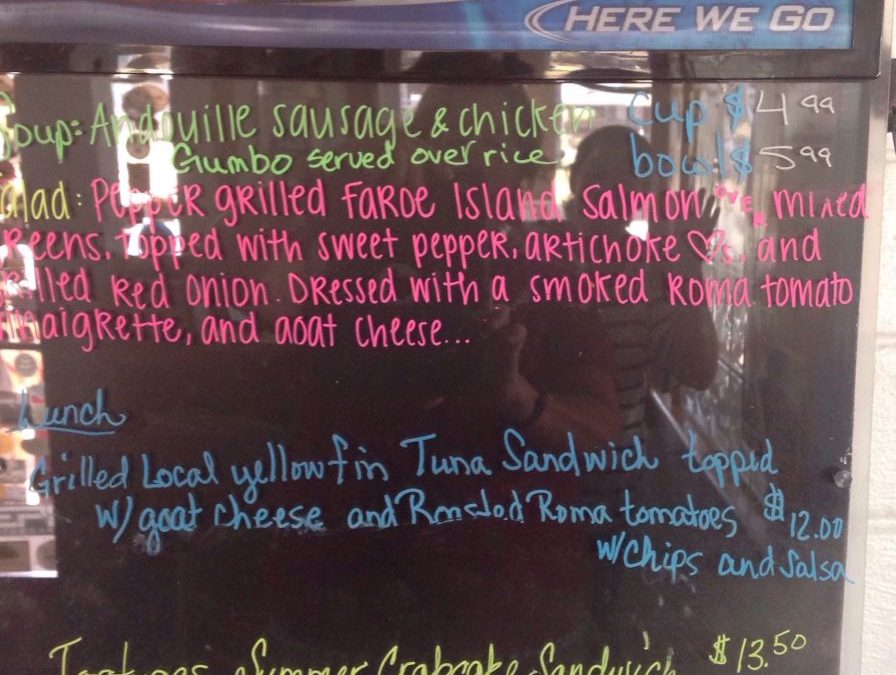 HERE WE GO
Soup: Andouille sausage & chicken cup $4.99
Gumbo served over rice. bowl $5.99
alad: Pepper grilled Faroe Island Salmon over mixed
reens, topped with sweet pepper, artichoke ♡s, and
grilled red onion. Dressed with a smoked Roma tomato
vinaigrette, and goat cheese...
Lunch
Grilled Local yellowfin Tuna Sandwich topped
w/ goat cheese and Roasted Roma tomatoes $12.00
w/chips and salsa
Summer Crabcake Sandwich $13.50